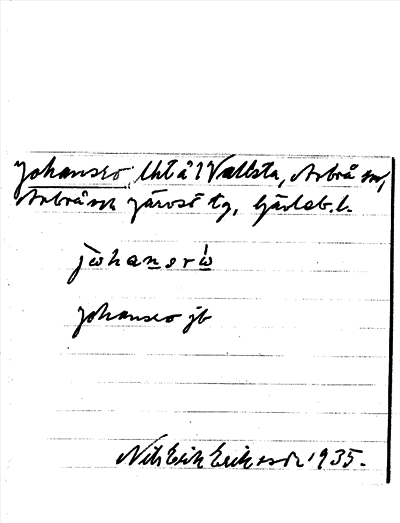 Johansro, lht å 1 Vallsta, Arbrå sn,
Arbrå och Järvsö tg, Gävleb. l.
jωhansrω
Johansro jb
Nils Erik Eriksson 1935.